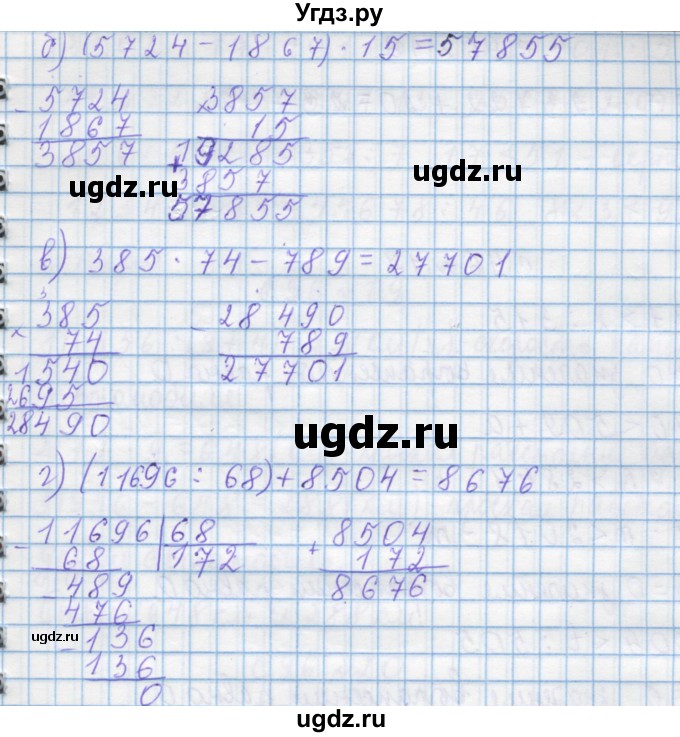 Угдз.ру
б) (5724 - 1867) · 15 = 57855
- 5724
1867
3857
× 3857
15
+ 19285
3857
57855
ugdz.ru
ugdz.ru
в) 385 · 74 - 789 = 27701
3
× 385
74
1540
2695
28490
- 28490
789
27701
ugdz.ru
г) (11696 : 68) + 8504 = 8676
- 11696 | 68
68 172
- 489
476
- 136
136
0
+ 8504
172
8676
ugdz.ru
ugdz.ru
ugdz.ru